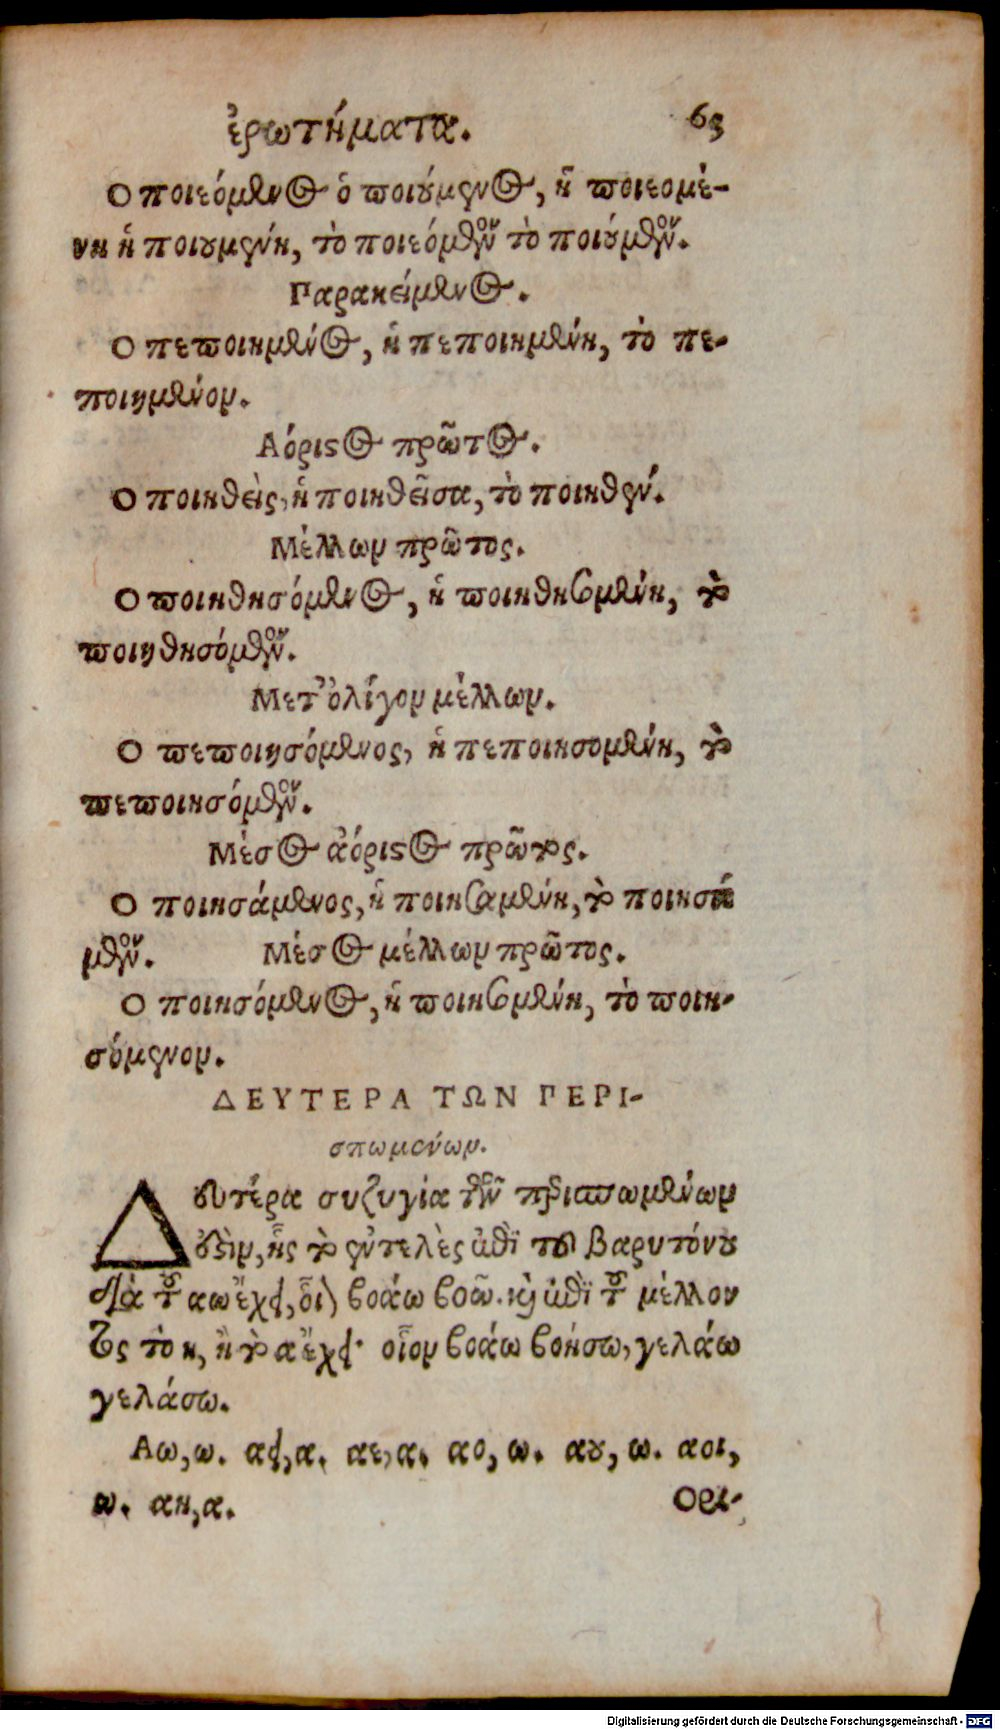 ἐρωτήματα. 63
Ο ποιεόμενος ὁ ποιούμενος, ἡ ποιεομέ-
νη ἡ ποιουμένη, τὸ ποιεόμενον τὸ ποιούμενον.
Παρακείμενος.
Ο πεποιημένος, ἡ πεποιημένη, τὸ πε-
ποιημένον.
Αόριστος πρῶτος.
Ο ποιηθεὶς, ἡ ποιηθεῖσα, τὸ ποιηθέν.
Μέλλων πρῶτος.
Ο ποιηθησόμενος, ἡ ποιηθησομένη, τὸ
ποιηθησόμενον.
Μετ' ὀλίγον μέλλων.
Ο πεποιησόμενος, ἡ πεποιησομένη, τὸ
πεποιησόμενον.
Μέσος ἀόριστος πρῶτος.
Ο ποιησάμενος, ἡ ποιησαμένη, τὸ ποιησά
μενον. Μέσος μέλλων πρῶτος.
Ο ποιησόμενος, ἡ ποιησομένη, τὸ ποιη-
σόμενον.
ΔΕΥΤΕΡΑ ΤΩΝ ΠΕΡΙ-
σπωμένων.
Δευτέρα συζυγία τῶν περισπωμένων
ἐστὶν, ἧς τὸ ἐντελὲς ἀπὸ τοῦ βαρυτόνου
διὰ τοῦ αω ἔχει, οἷον βοάω βοῶ. καὶ ἀπὸ τοῦ μέλλον
τος τὸ η, ἢ τὸ α ἔχει· οἷον βοάω βοήσω, γελάω
γελάσω.
Αω, ω. αει, α. αε, α. αο, ω. αου, ω. αοι,
ω. αη, α. Ορι-
Digitalisierung gefördert durch die Deutsche Forschungsgemeinschaft - DFG